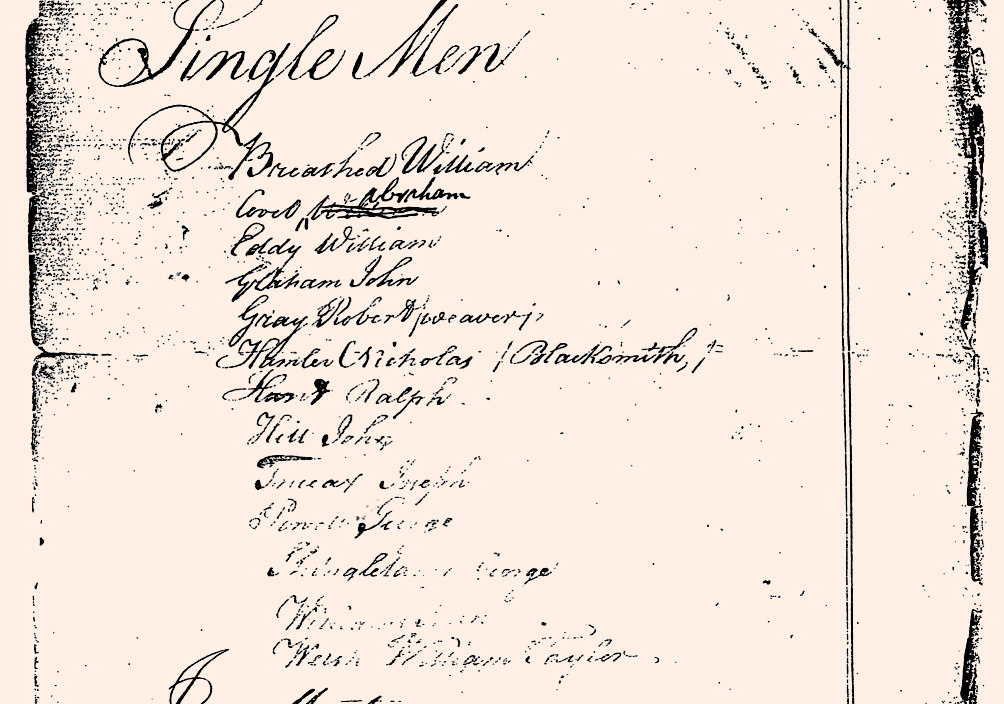 Single Men
Breathed William
Covel Abraham
Eddy William
Graham John
Gray Robert (weaver)
Hamler Nicholas (Blacksmith,)
Hant Ralph
Hill John
Truax Joseph
Powell George
George
Welsh William Taylor